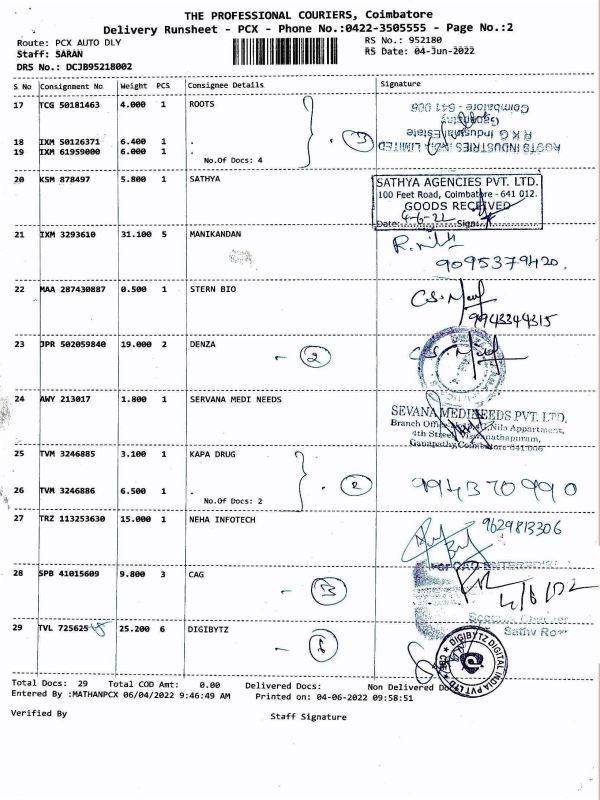 THE PROFESSIONAL COURIERS, Coimbatore
Delivery Runsheet - PCX - Phone No.:0422-3505555 - Page No.:2
Route: PCX AUTO DLY
RS No.: 952180
Staff: SARAN
RS Date: 04-Jun-2022
DRS No.: DCJB95218002
S No Consignment No Weight PCS Consignee Details Signature
17 TCG 50181463 4.000 1 ROOTS
18 IXM 50126371 6.400 1 .
19 IXM 61959000 6.000 1 .
No.Of Docs: 4
3
ROOTS INDUSTRIES INDIA LIMITED
R K G Industrial Estate
Ganapathy
Coimbatore - 641 006
20 KSM 878497 5.800 1 SATHYA
SATHYA AGENCIES PVT. LTD.
100 Feet Road, Coimbatore - 641 012.
GOODS RECEIVED
4-6-22
Date: Sign:
21 IXM 3293610 31.100 5 MANIKANDAN
9095379420.
22 MAA 287430887 0.500 1 STERN BIO
9943344315
23 JPR 502059840 19.000 2 DENZA
- 2
24 AWY 213017 1.800 1 SERVANA MEDI NEEDS
SEVANA MEDINEEDS PVT. LTD.
Branch Office Nila Appartment,
4th Street, Viswanathapuram,
Ganapathy, Coimbatore-641 006
25 TVM 3246885 3.100 1 KAPA DRUG
26 TVM 3246886 6.500 1 .
No.Of Docs: 2
2
994370990
27 TRZ 113253630 15.000 1 NEHA INFOTECH
9629813306
28 SPB 41015609 9.800 3 CAG
- 3
For CAG ENTERPRISES
4/6/22
29 TVL 725625 25.200 6 DIGIBYTZ
- 6
DIGIBYTZ DIGITAL INDIA PVT LTD
Total Docs: 29 Total COD Amt: 0.00 Delivered Docs: Non Delivered Docs:
Entered By :MATHANPCX 06/04/2022 9:46:49 AM Printed on: 04-06-2022 09:58:51
Verified By
Staff Signature